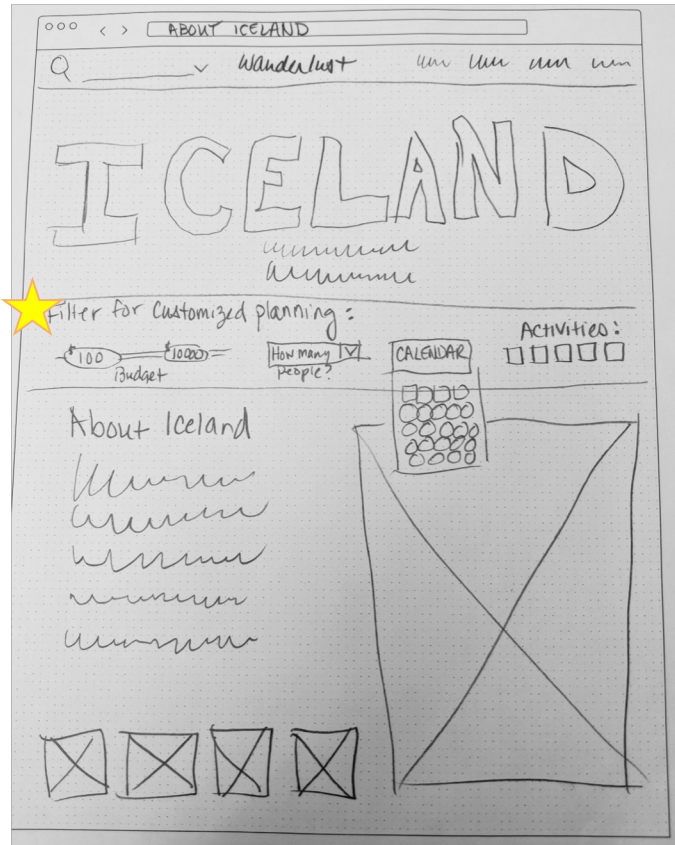 ABOUT ICELAND
Wanderlust
ICELAND
Filter for Customized planning:
$100
$10000
Budget
How many
people?
CALENDAR
Activities:
About Iceland